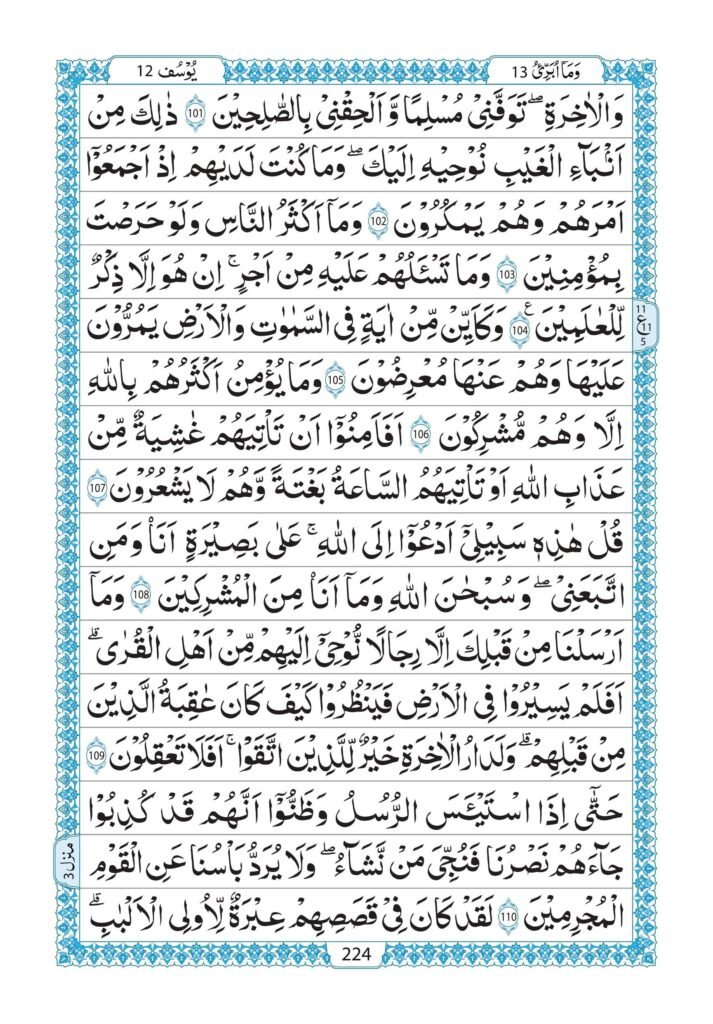 وَمَاۤ اُبَرِّئُ 13
يُوْسُف 12
وَالْاٰخِرَةِ ۖ تَوَفَّنِىْ مُسْلِمًا وَّ اَلْحِقْنِىْ بِالصّٰلِحِيْنَ 101 ذٰلِكَ مِنْ
اَنْۢبَآءِ الْغَيْبِ نُوْحِيْهِ اِلَيْكَ ۖ وَمَا كُنْتَ لَدَيْهِمْ اِذْ اَجْمَعُوْۤا
اَمْرَهُمْ وَهُمْ يَمْكُرُوْنَ 102 وَمَاۤ اَكْثَرُ النَّاسِ وَلَوْ حَرَصْتَ
بِمُؤْمِنِيْنَ 103 وَمَا تَسْـَٔلُهُمْ عَلَيْهِ مِنْ اَجْرٍ ۚ اِنْ هُوَ اِلَّا ذِكْرٌ
لِّلْعٰلَمِيْنَ 104 ع وَكَاَيِّنْ مِّنْ اٰيَةٍ فِى السَّمٰوٰتِ وَالْاَرْضِ يَمُرُّوْنَ
11
ع 11
5
عَلَيْهَا وَهُمْ عَنْهَا مُعْرِضُوْنَ 105 وَمَا يُؤْمِنُ اَكْثَرُهُمْ بِاللّٰهِ
اِلَّا وَهُمْ مُّشْرِكُوْنَ 106 اَفَاَمِنُوْۤا اَنْ تَاْتِيَهُمْ غَاشِيَةٌ مِّنْ
عَذَابِ اللّٰهِ اَوْ تَاْتِيَهُمُ السَّاعَةُ بَغْتَةً وَّهُمْ لَا يَشْعُرُوْنَ 107
قُلْ هٰذِهٖ سَبِيْلِىْۤ اَدْعُوْۤا اِلَى اللّٰهِ ۚ عَلٰى بَصِيْرَةٍ اَنَا۟ وَمَنِ
اتَّبَعَنِىْ ۖ وَسُبْحٰنَ اللّٰهِ وَمَاۤ اَنَا۟ مِنَ الْمُشْرِكِيْنَ 108 وَمَاۤ
اَرْسَلْنَا مِنْ قَبْلِكَ اِلَّا رِجَالًا نُّوْحِىْۤ اِلَيْهِمْ مِّنْ اَهْلِ الْقُرٰى ۗ
اَفَلَمْ يَسِيْرُوْا فِى الْاَرْضِ فَيَنْظُرُوْا كَيْفَ كَانَ عَاقِبَةُ الَّذِيْنَ
مِنْ قَبْلِهِمْ ۗ وَلَدَارُ الْاٰخِرَةِ خَيْرٌ لِّلَّذِيْنَ اتَّقَوْا ۚ اَفَلَا تَعْقِلُوْنَ 109
حَتّٰۤى اِذَا اسْتَيْـَٔسَ الرُّسُلُ وَظَنُّوْۤا اَنَّهُمْ قَدْ كُذِبُوْا
جَآءَهُمْ نَصْرُنَا فَنُجِّىَ مَنْ نَّشَآءُ ۖ وَلَا يُرَدُّ بَاْسُنَا عَنِ الْقَوْمِ
منزل 3
الْمُجْرِمِيْنَ 110 لَقَدْ كَانَ فِىْ قَصَصِهِمْ عِبْرَةٌ لِّاُولِى الْاَلْبٰبِ ۗ
224